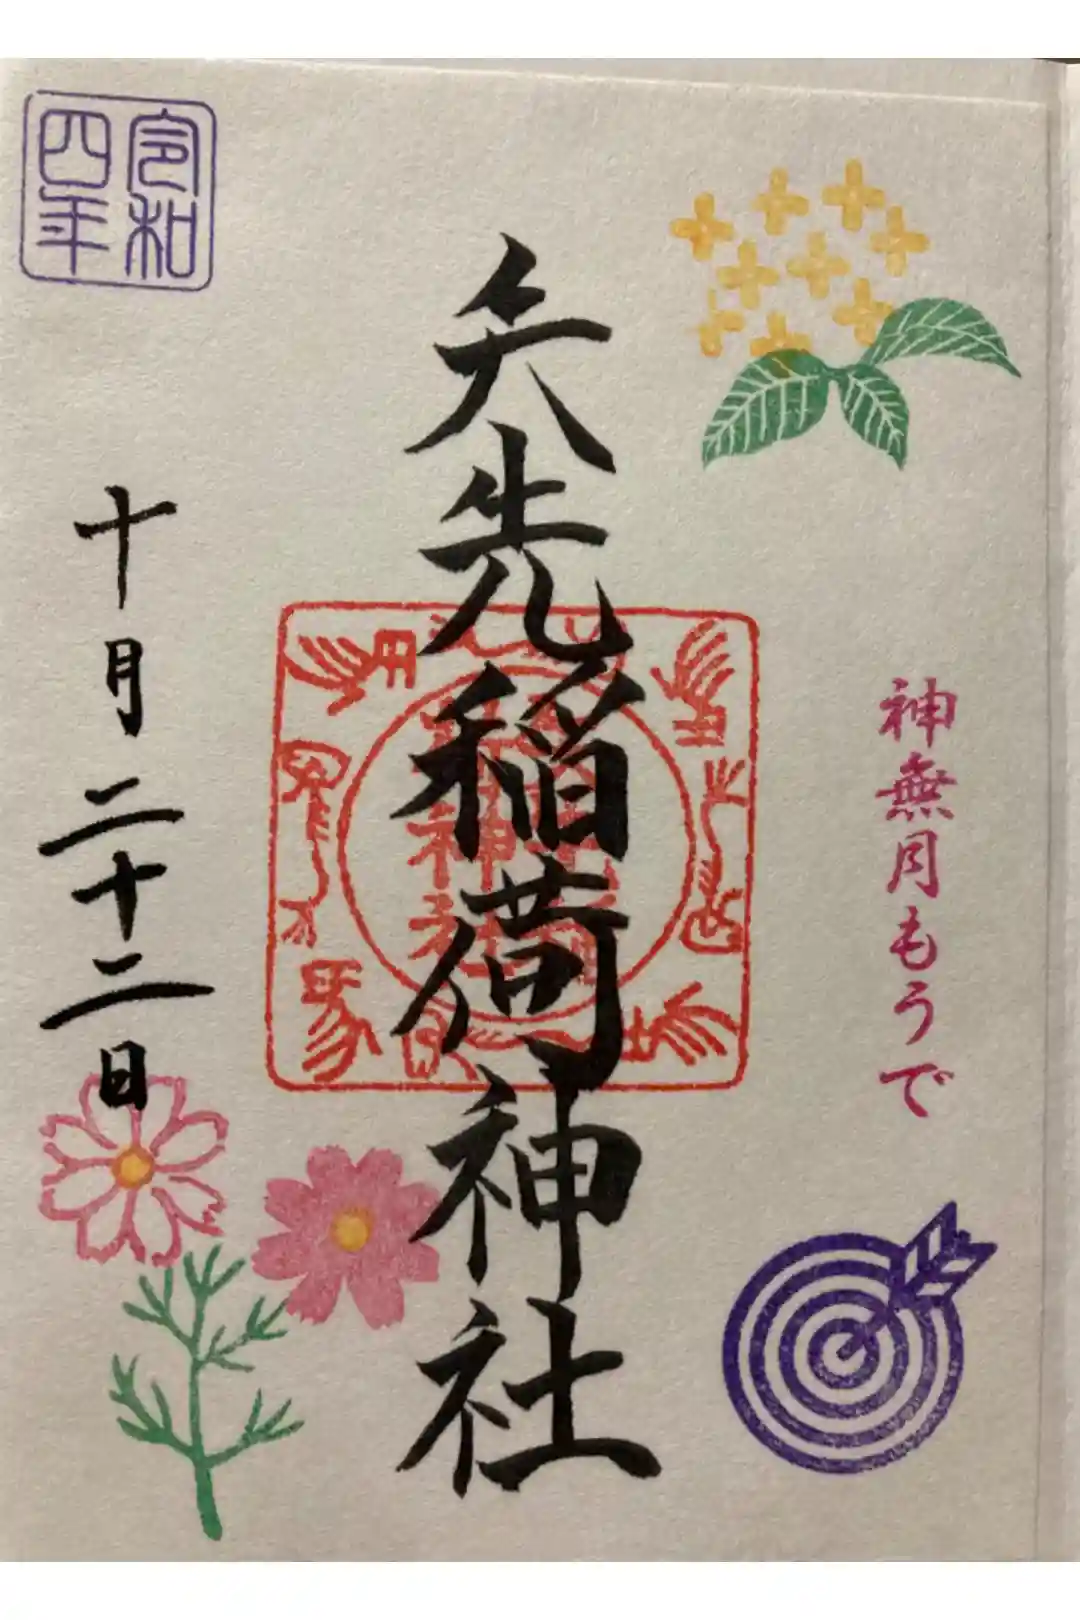 神無月もうで
矢先稲荷神社
令和
四年
十月二十二日